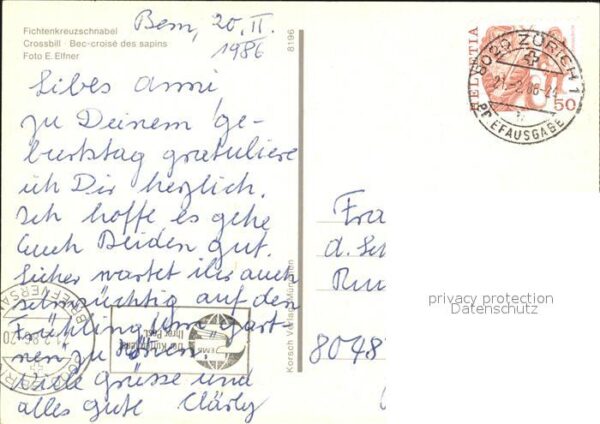 Fichtenkreuzschnabel
Crossbill Bec-croisé des sapins
Foto E. Elfner
8196
Bern, 20. II.
1986
Liebes Anni,
zu Deinem Ge-
burtstag gratuliere
ich Dir herzlich.
Ich hoffe es gehe
Euch Beiden gut.
Sicher wartet ihr auch
sehnsüchtig auf den
Frühling um gärt-
nern zu können.
Viele Grüsse und
alles gute Clärly
Korsch Verlag München
HELVETIA
50
8020 ZÜRICH 1
21.-2.86-24
BRIEFAUSGABE
BRIEFVERSAND
EMS
Der Kurierdienst
Ihrer Post.
Fra
d. Sc
Ru
8048
privacy protection
Datenschutz